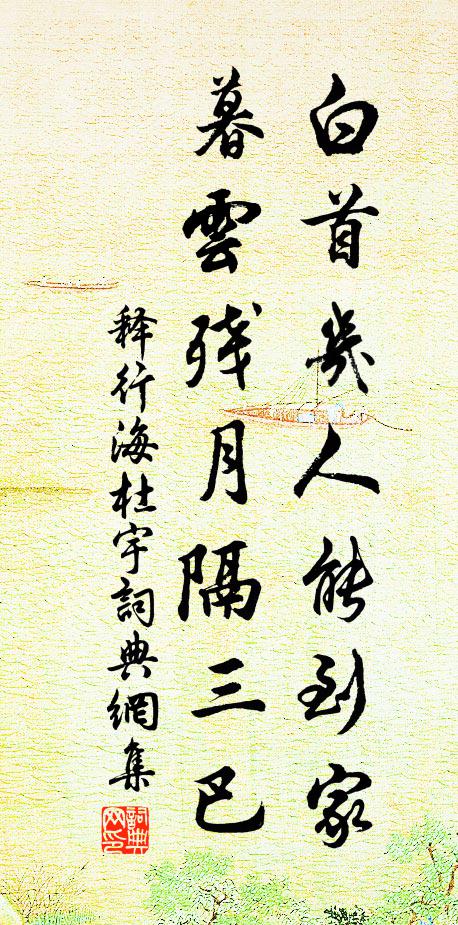 白首幾人能到家
暮雲残月隔三巴
释行海杜宇詞典網集
詞典網印